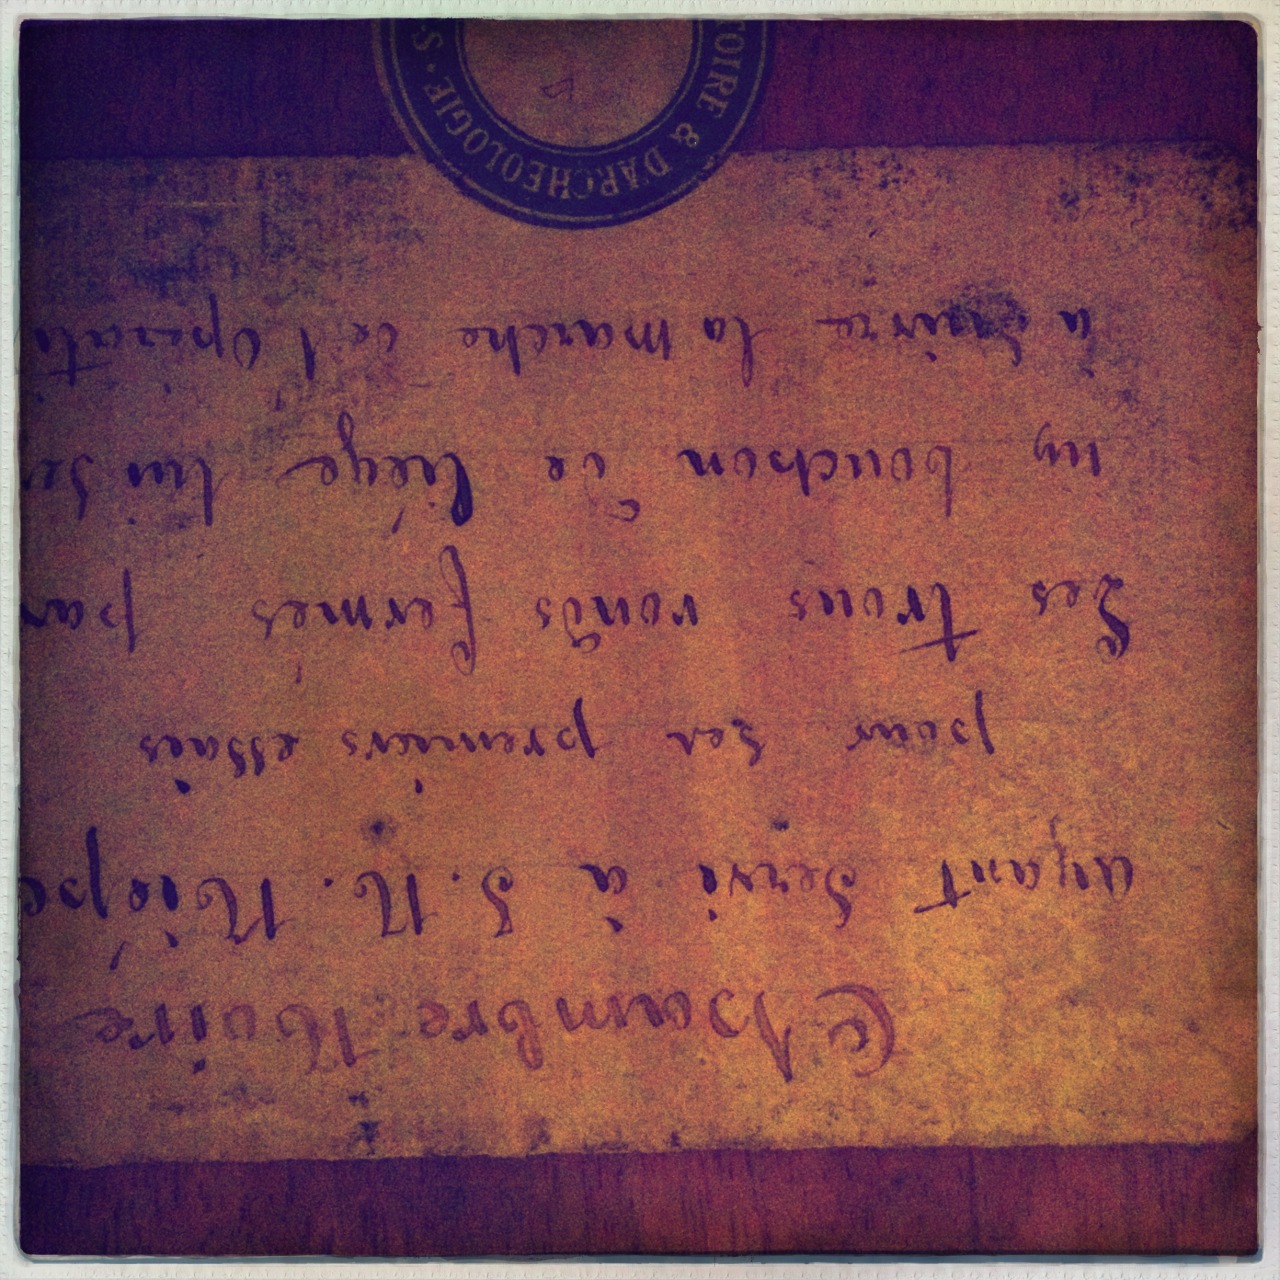 Chambre Noire
ayant servi à J. N. Niépc
pour ses premiers essais
Les trous ronds fermés par
un bouchon de liège lui se
à suivre la marche de l'opérati
TOIRE & D'ARCHEOLOGIE · S